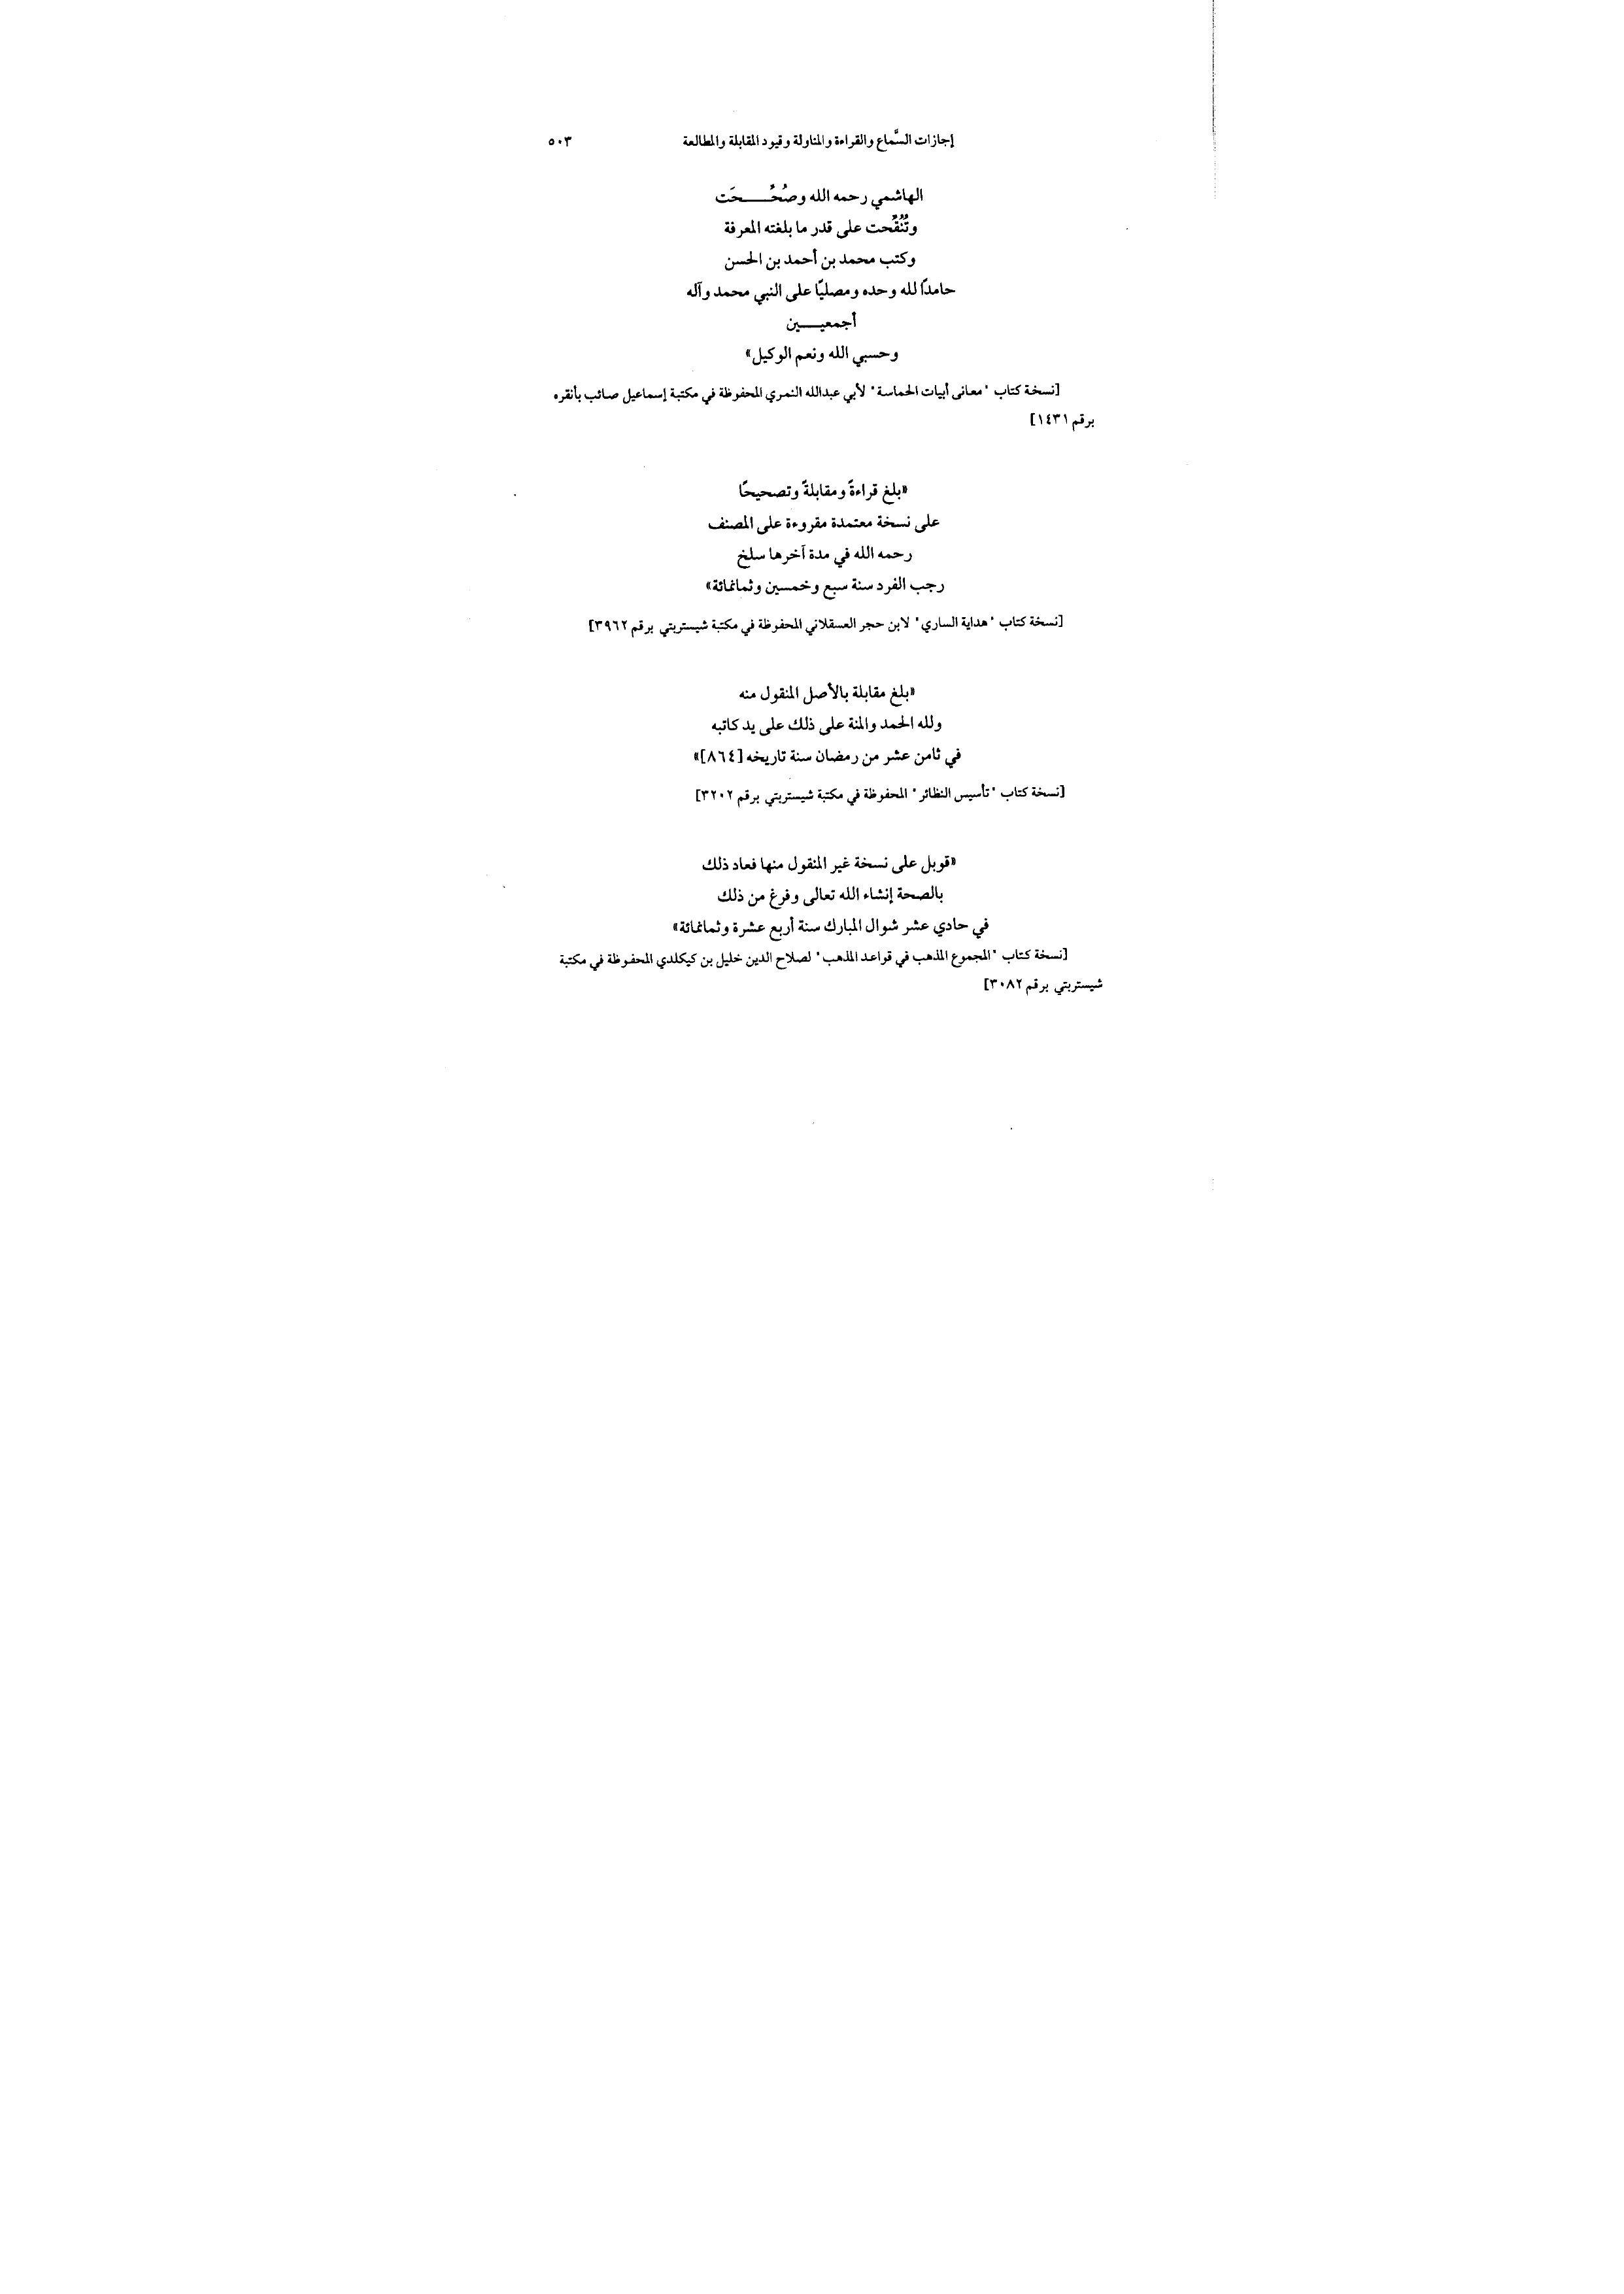 إجازات السَّماع والقراءة والمناولة وقيود المقابلة والمطالعة ٥٠٣
الهاشمي رحمه الله وصُحِّـــحَت
وتُنُقِّحت على قدر ما بلغته المعرفة
وكتب محمد بن أحمد بن الحسن
حامدًا لله وحده ومصليًا على النبي محمد وآله
أجمعيـــين
وحسبي الله ونعم الوكيل»
[نسخة كتاب "معانى أبيات الحماسة" لأبي عبدالله النمري المحفوظة في مكتبة إسماعيل صائب بأنقره
برقم ١٤٣١]
«بلغ قراءةً ومقابلةً وتصحيحًا
على نسخة معتمدة مقروءة على المصنف
رحمه الله في مدة آخرها سلخ
رجب الفرد سنة سبع وخمسين وثمانمائة»
[نسخة كتاب "هداية الساري" لابن حجر العسقلاني المحفوظة في مكتبة شيستربتي برقم ٣٩٦٢]
«بلغ مقابلة بالأصل المنقول منه
ولله الحمد والمنة على ذلك على يد كاتبه
في ثامن عشر من رمضان سنة تاريخه [٨٦٤]»
[نسخة كتاب "تأسيس النظائر" المحفوظة في مكتبة شيستربتي برقم ٣٢٠٢]
«قوبل على نسخة غير المنقول منها فعاد ذلك
بالصحة إنشاء الله تعالى وفرغ من ذلك
في حادي عشر شوال المبارك سنة أربع عشرة وثمانمائة»
[نسخة كتاب "المجموع المذهب في قواعد المذهب" لصلاح الدين خليل بن كيكلدي المحفوظة في مكتبة
شيستربتي برقم ٣٠٨٢]